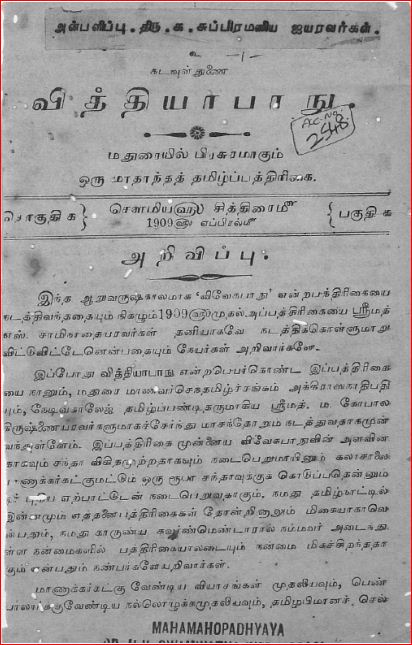 அன்பளிப்பு. திரு. க. சுப்பிரமணிய ஐயரவர்கள்.
உ
கடவுள் துணை
வித்தியாபாநு.
AC.No.
2548
மதுரையில் பிரசுரமாகும்
ஒரு மாதாந்தத் தமிழ்ப்பத்திரிகை.
தொகுதி க } சௌமியஹு சித்திரைமீ { பகுதி க
1909ஹு ஏப்ரல்மீ
அறிவிப்பு.
இந்த ஆறுவருஷகாலமாக 'விவேகபாநு' என்றபத்திரிகையை
நடத்திவந்ததையும் நிகழும் 1909ஹுமுதல் அப்பத்திரிகையை ஸ்ரீமத்
எஸ். சாமிநாதையரவர்கள் தனியாகவே நடத்திக்கொள்ளுமாறு
விட்டுவிட்டேனென்பதையும் நேயர்கள் அறிவார்களே.
இப்போது வித்தியாபாநு என்றபெயர்கொண்ட இப்பத்திரிகை
யை நானும், மதுரை மாணவர்செந்தமிழ்ச்சங்கம் அக்கிராஸநாதிபதி
யும், நேடிவ்காலேஜ் தமிழ்ப்பண்டிதருமாகிய ஸ்ரீமத். ம. கோபால
கிருஷ்ணையரவர்களுமாகச்சேர்ந்து மாசந்தோறும் நடத்துவதாகமுன்
வந்துள்ளேம். இப்பத்திரிகை முன்னைய விவேகபாநுவின் அளவின
தாகவும் சந்தா விகிதமுற்றதாகவும் நடைபெறுமாயினும் கலாசாலை
மாணாக்கர்கட்குமட்டும் ஒரு ரூபா சந்தாவுக்குக் கொடுப்பதென்னும்
புதிய ஏற்பாட்டுடன் நடைபெறுவதாகும். நமது தமிழ்நாட்டில்
இன்னமும் எத்தனைபத்திரிகைகள் தோன்றினாலும் மிகையாகாவெ
ன்பதும், நமது காருண்ய கவர்ண்மெண்டாரால் நம்மவர் அடைந்து
ள்ள நன்மைகளில் பத்திரிகையாலடையும் நன்மை மிகச்சிறந்ததா
கும் என்பதும் நண்பர்களேயறிவார்கள்.
மாணாக்கர்கட்கு வேண்டிய வியாசங்கள் முதலியவும், பெண்
பாலார்க்குவேண்டிய நல்லொழுக்கமுதலியவும், தமிழபிமானச் செல்
MAHAMAHOPADHYAYA